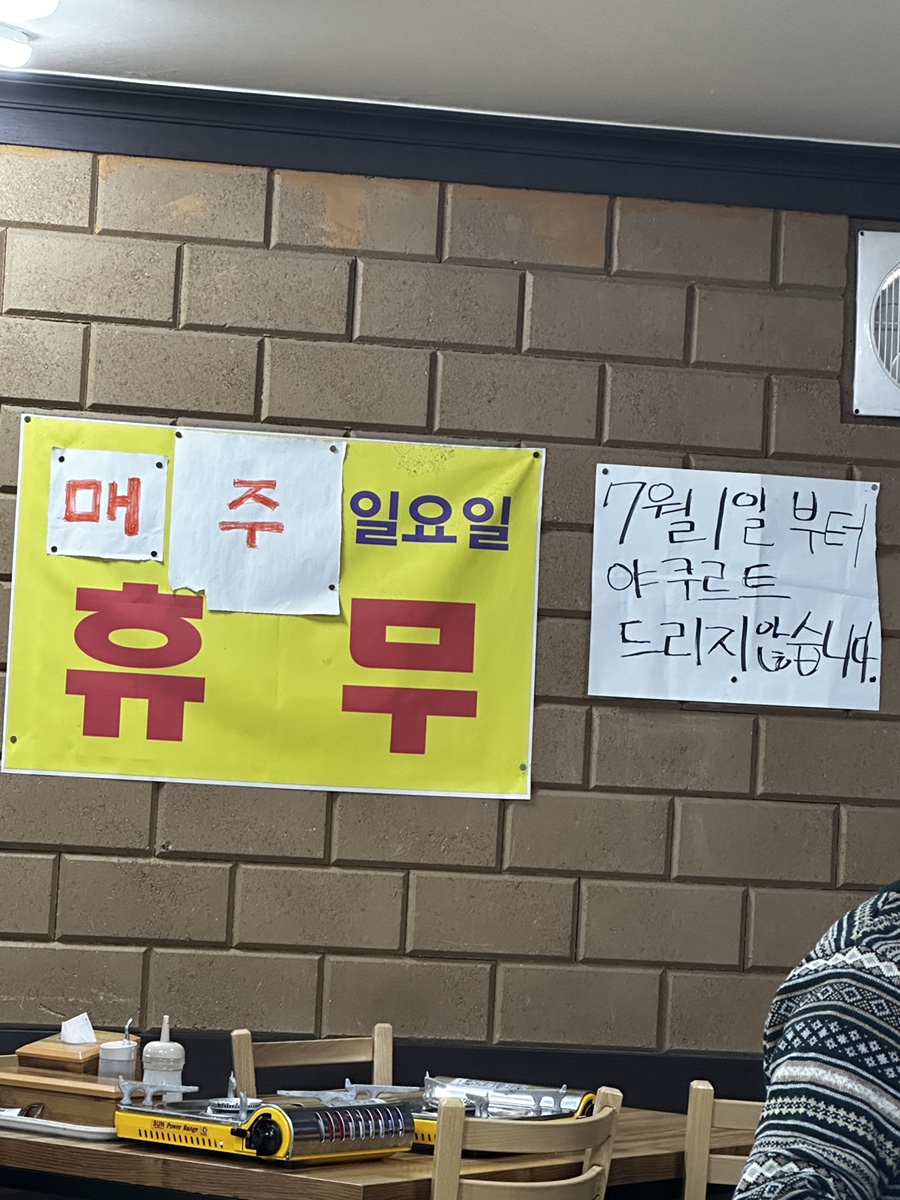 매 주 일요일
휴 무
7월 1일 부터
야쿠르트
드리지 않습니다.
SUN Power Range